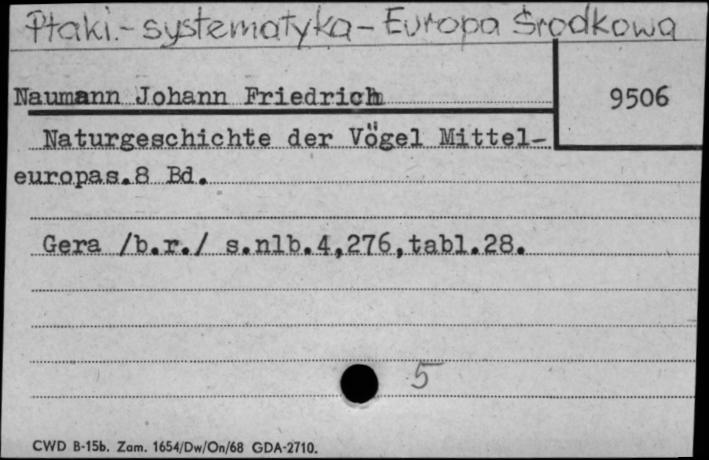 Ptaki.- systematyka - Europa Środkowa
Naumann Johann Friedrich
9506
Naturgeschichte der Vögel Mittel-
europas.8 Bd.
Gera /b.r./ s.nlb.4,276,tabl.28.
5
CWD B-15b. Zam. 1654/Dw/On/68 GDA-2710.